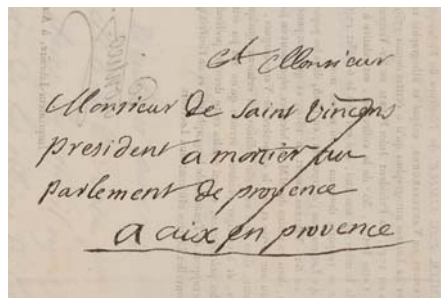 A Monsieur
Monsieur de saint Vincens
president a mortier au
parlement de provence
a aix en provence